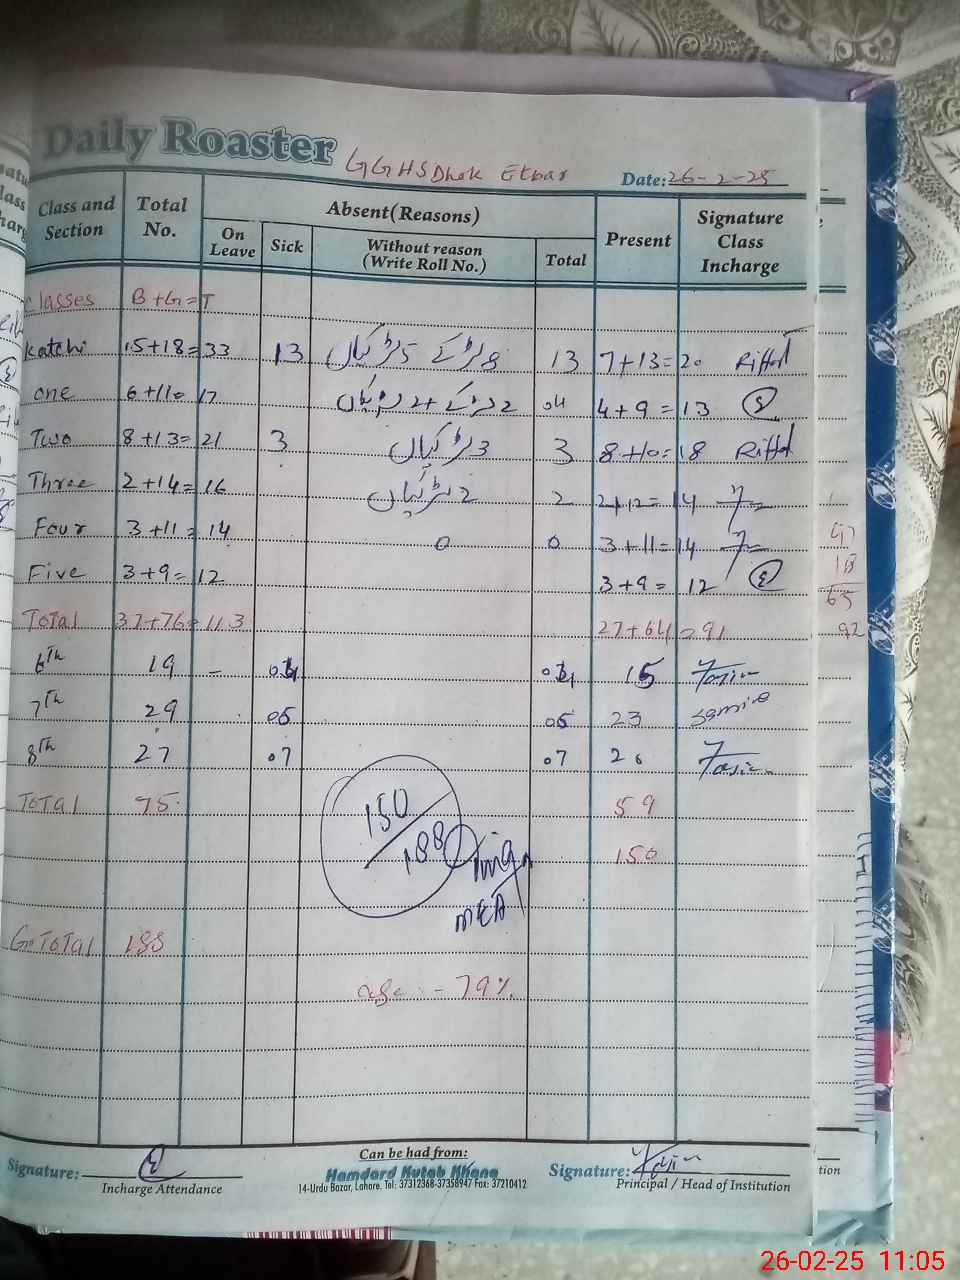 Daily Roaster GGHS Dhok Etbar Date: 26-2-25
Class and Section Total No. Absent(Reasons) On Leave Sick Without reason (Write Roll No.) Total Present Signature Class Incharge
Classes B+G=T
Katchi 15+18=33 13 8 لڑکے 5 لڑکیاں 13 7+13=20 Riffat
one 6+11= 17 2 لڑکے + 2 لڑکیاں 04 4+9=13
Two 8+13=21 3 3 لڑکیاں 3 8+10=18 Riffat
Three 2+14=16 2 لڑکیاں 2 2+12=14
Four 3+11=14 0 0 3+11=14
Five 3+9=12 3+9=12
Total 37+76=113 27+64=91
6th 19 - 04 04 15
7th 29 06 06 23
8th 27 07 07 20
Total 75 59
150
150/188
MEA
G.Total 188
age:- 79%
Signature: Incharge Attendance
Can be had from:
Hamdard Kutab Khana
14-Urdu Bazar, Lahore. Tel: 37312368-37358947 Fax: 37210412
Signature: Principal / Head of Institution
tion
47
18
65
92
26-02-25 11:05